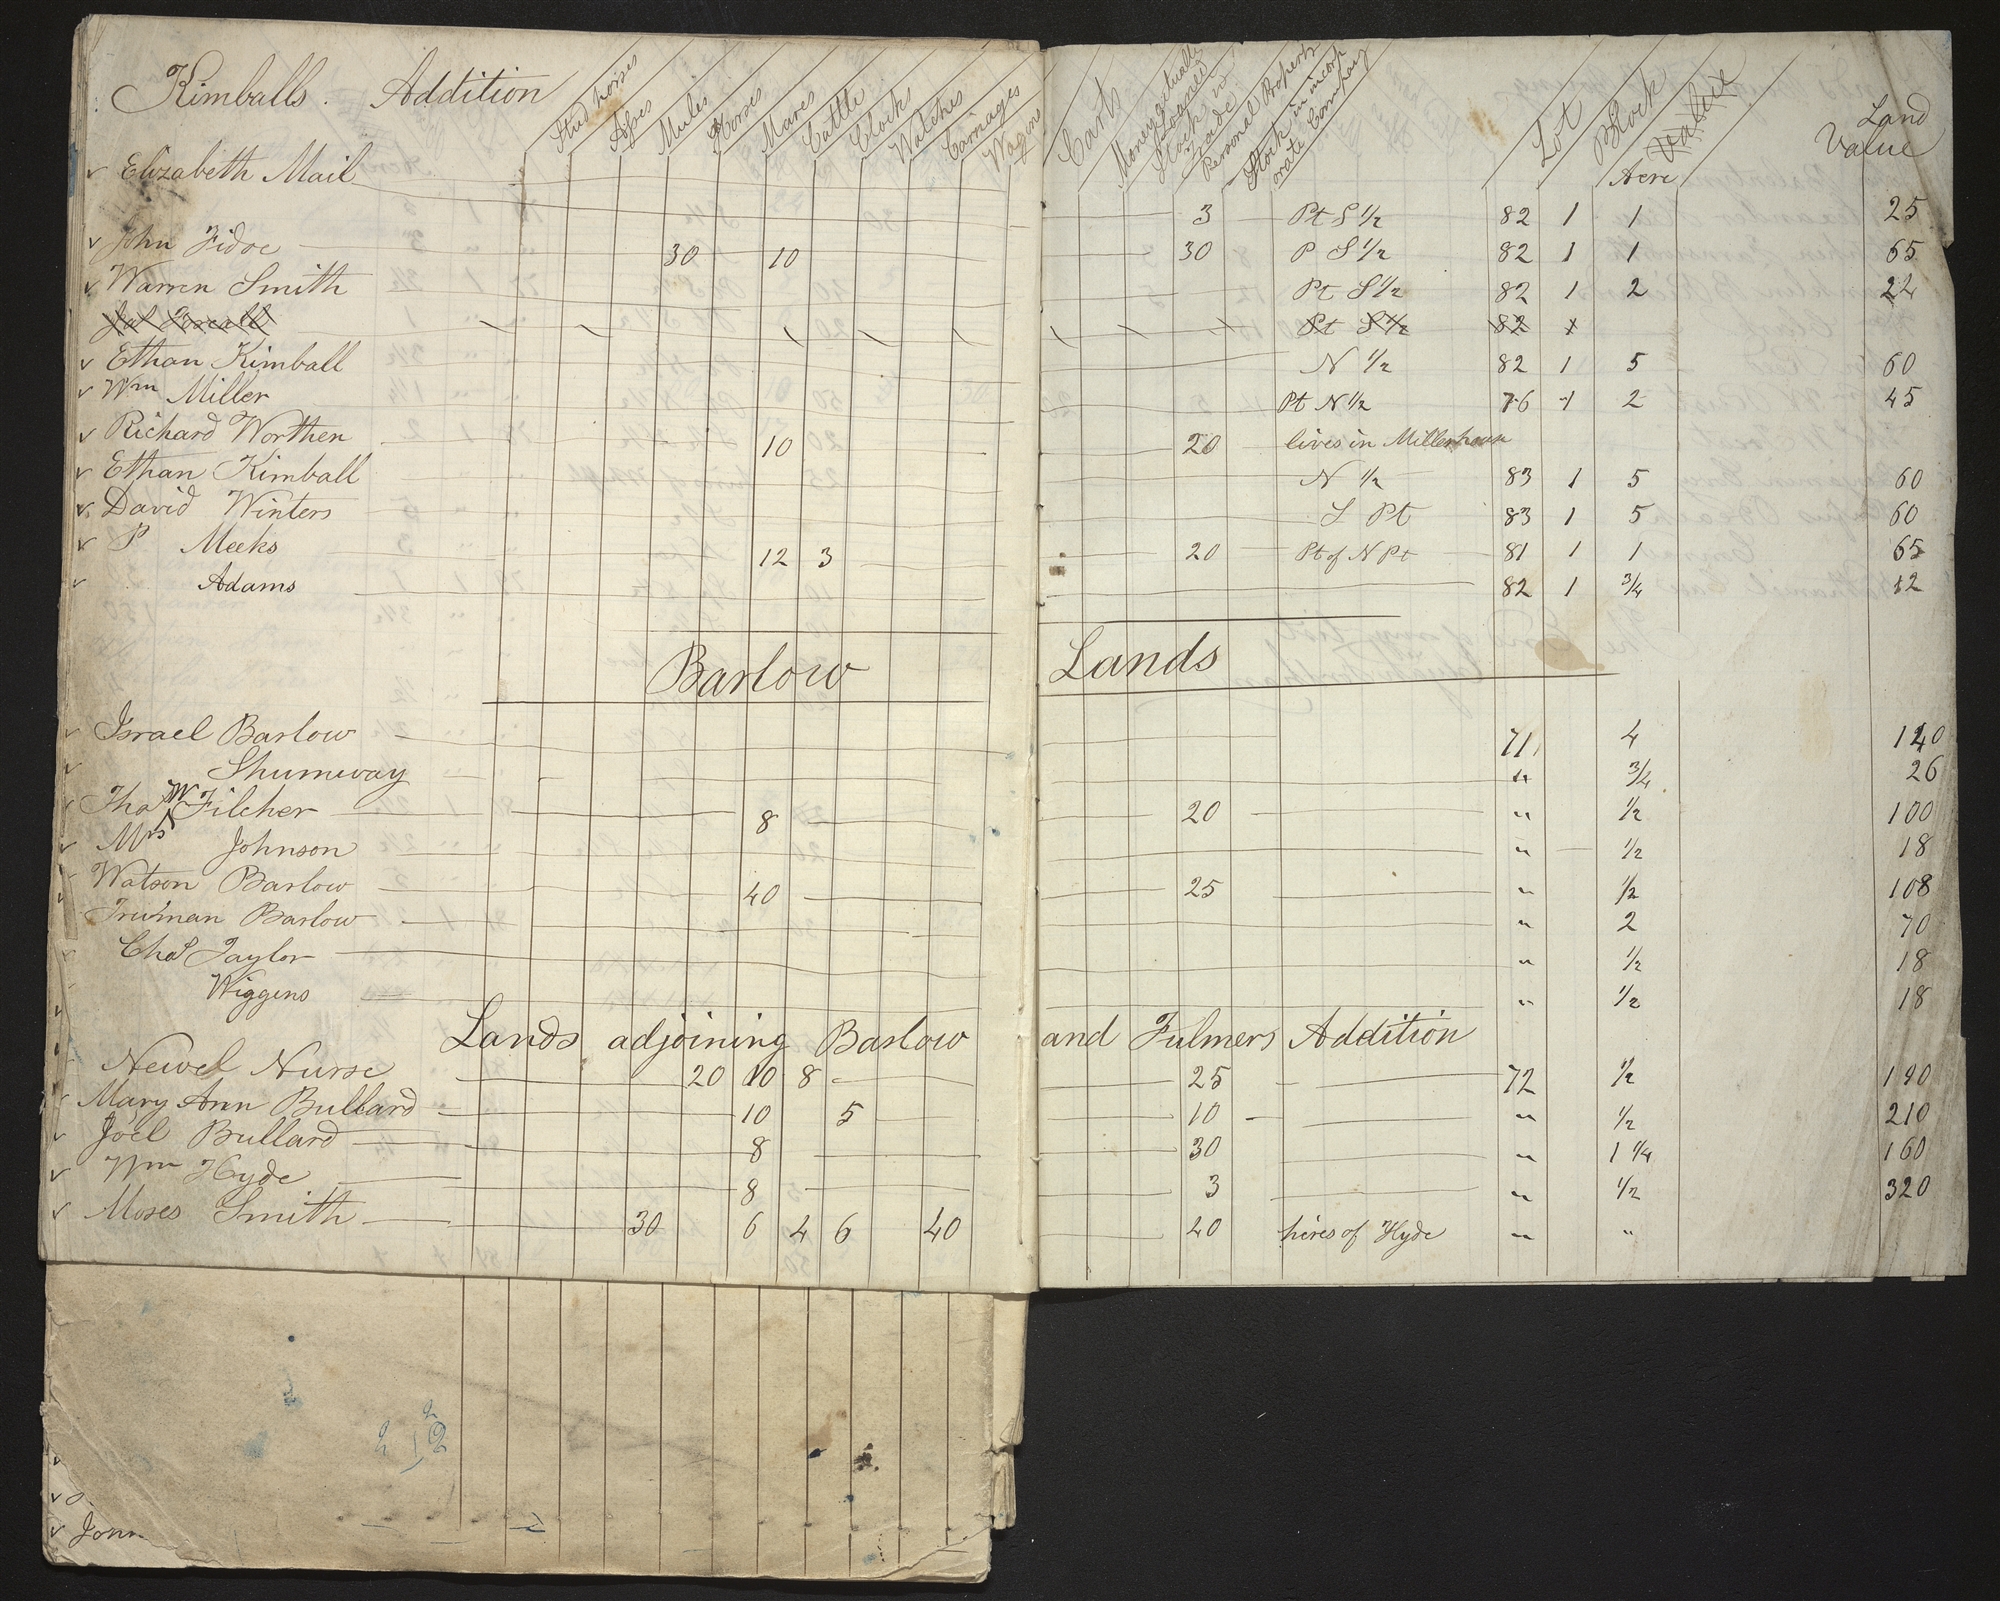 Kimballs. Addition Stud horses Asses Mules Horses Mares Cattle Clocks Watches Carriages Wagons Carts Money actually Loaned Stock in Trade Personal Property Stock in incorporate Company Lot Block Acre Value Land Value
Elizabeth Mail 3 Pt S 1/2 82 1 1 25
John Fidoe 30 10 30 P S 1/2 82 1 1 65
Warren Smith Pt S 1/2 82 1 2 22
Pt S 1/2 82 1
Ethan Kimball N 1/2 82 1 5 60
Wm Miller Pt N 1/2 76 1 2 45
Richard Worthen 10 20 lives in Millerhouse
Ethan Kimball N 1/2 83 1 5 60
David Winters S Pt 83 1 5 60
P Meeks 12 3 20 Pt of N Pt 81 1 1 65
Adams 82 1 3/4 12
Barlow Lands
Israel Barlow 71 4 120
Shumway " 3/4 26
Thos W Filcher 8 20 " 1/2 100
Mrs Johnson " 1/2 18
Watson Barlow 40 25 " 1/2 108
Truman Barlow " 2 70
Chas Taylor " 1/2 18
Wiggens " 1/2 18
Lands adjoining Barlow and Fulmers Addition
Newel Nurse 20 10 8 25 72 1/2 190
Mary Ann Bullard 10 5 10 " 1/2 210
Joel Bullard 8 30 " 1 1/4 160
Wm Hyde 8 3 " 1/2 320
Moses Smith 30 6 4 6 40 20 hires of Hyde " "